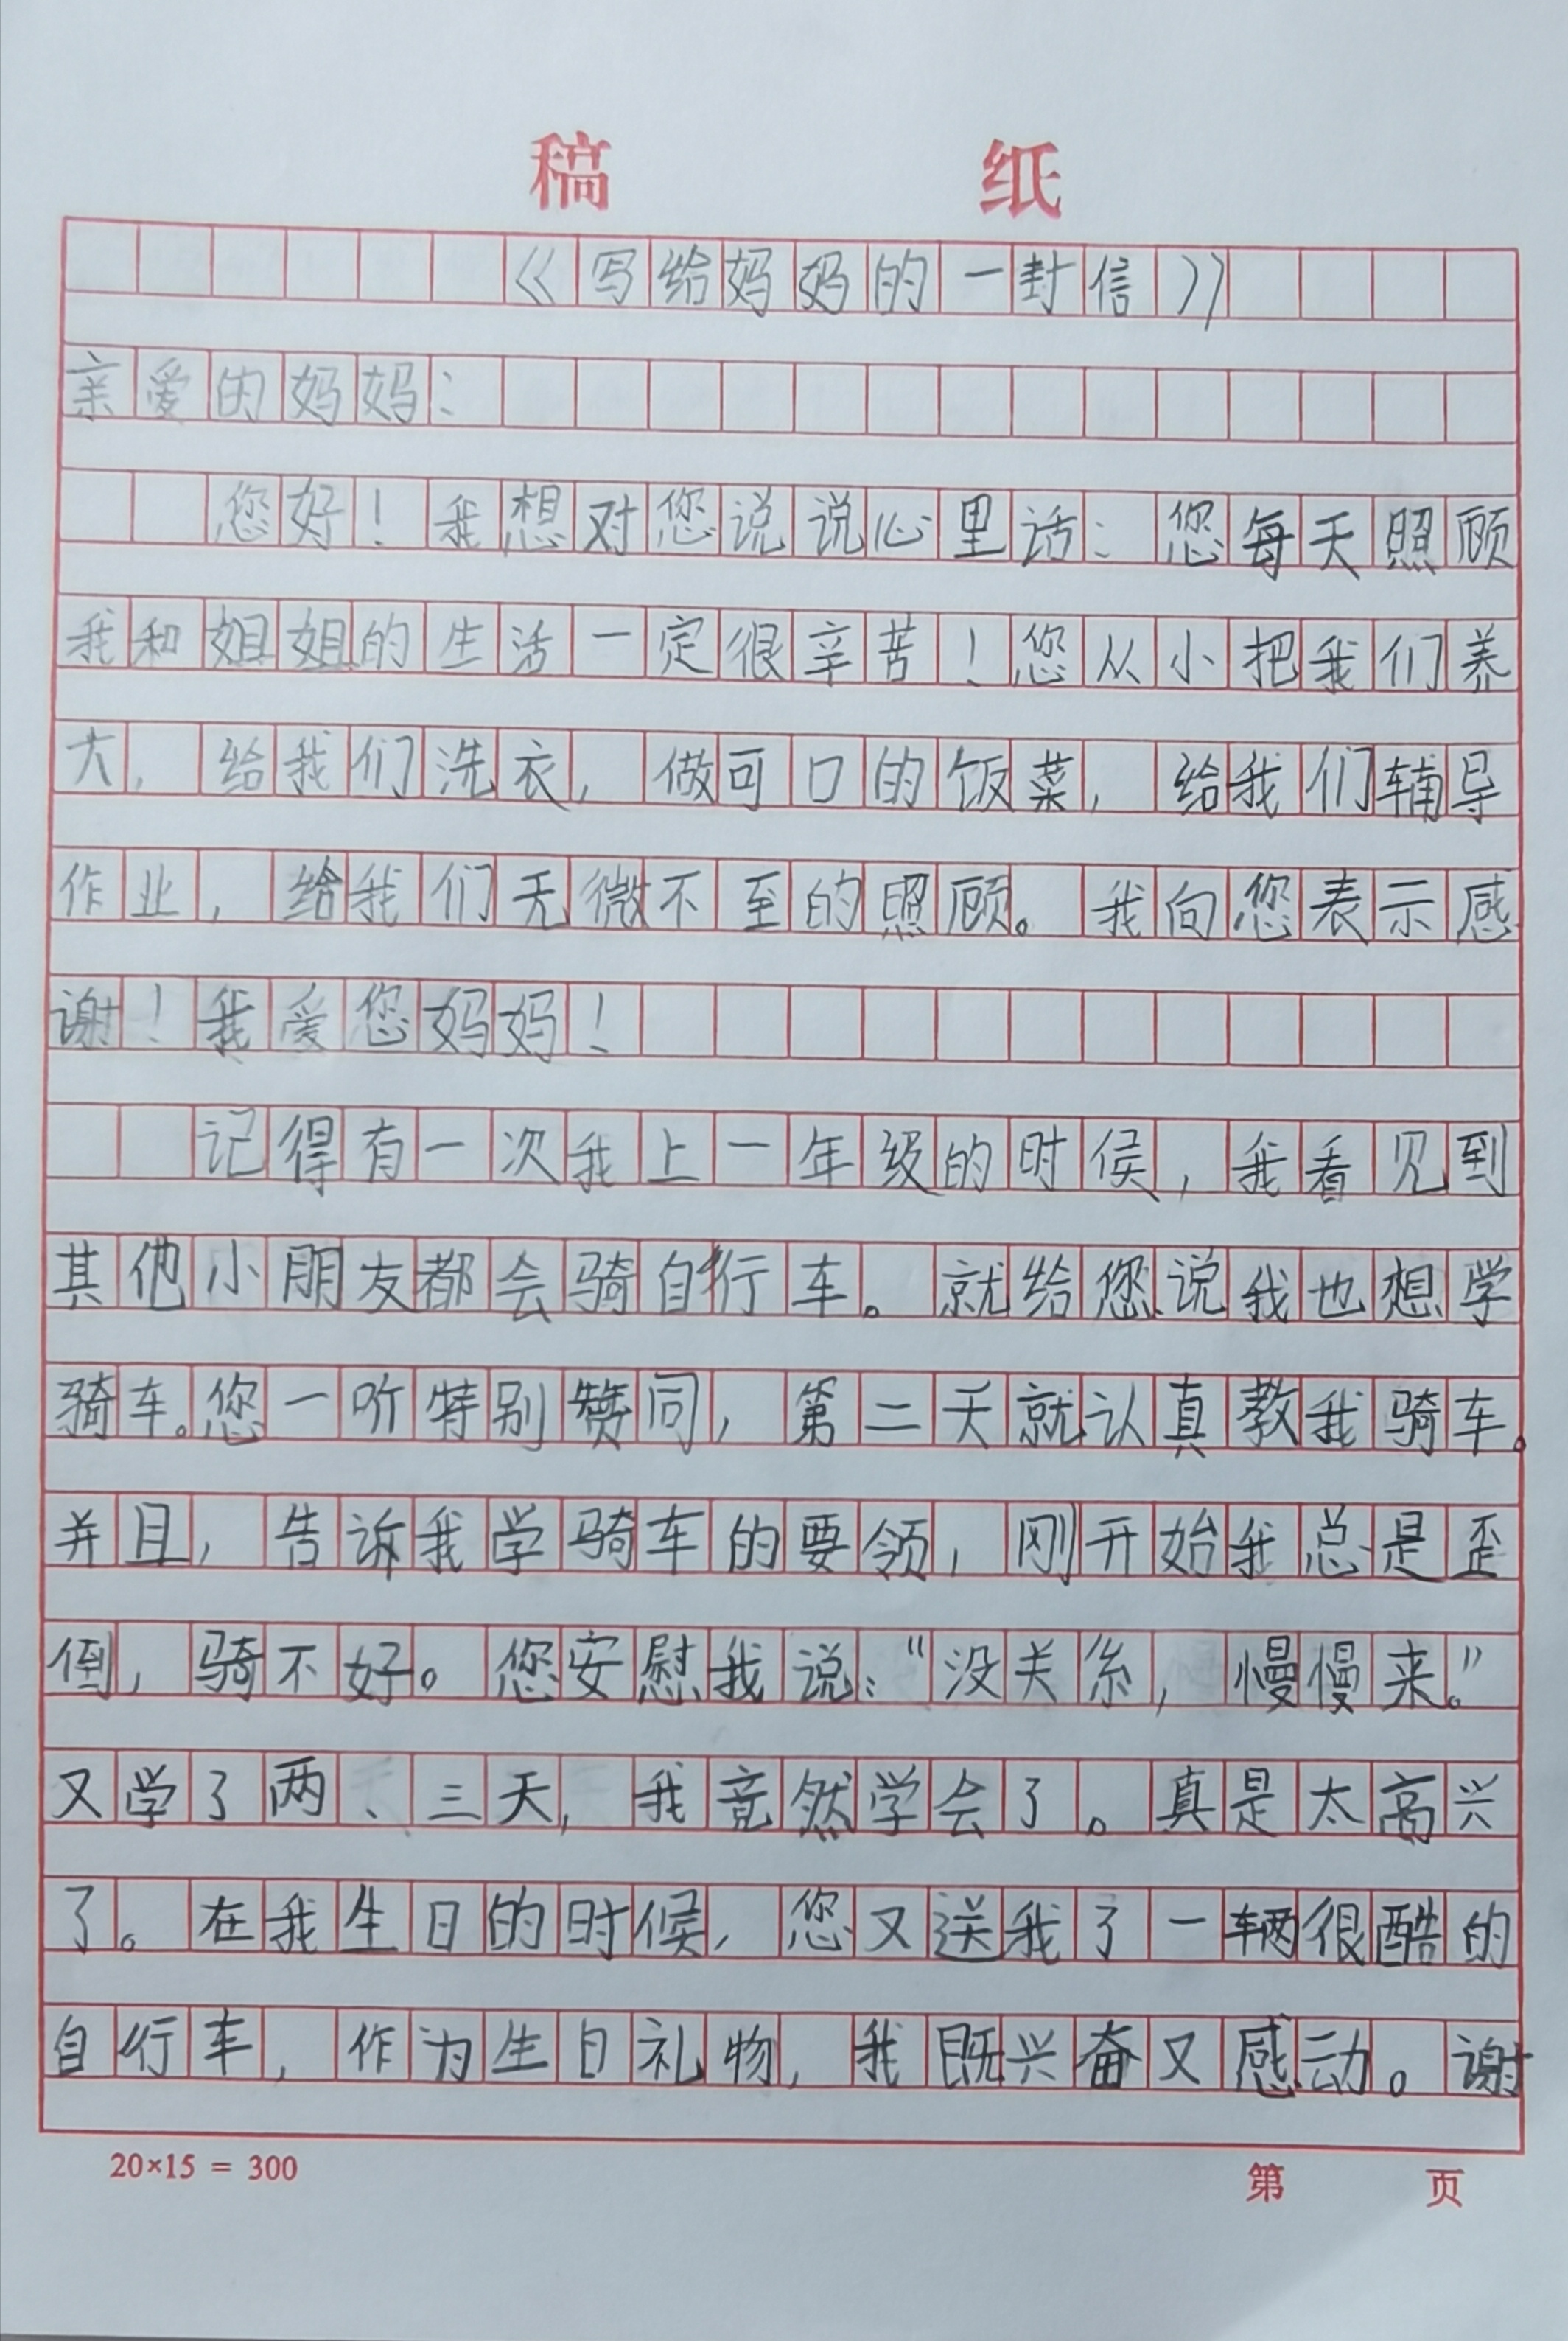 稿 纸
《写给妈妈的一封信》
亲爱的妈妈：
您好！我想对您说说心里话：您每天照顾
我和姐姐的生活一定很辛苦！您从小把我们养
大，给我们洗衣，做可口的饭菜，给我们辅导
作业，给我们无微不至的照顾。我向您表示感
谢！我爱您妈妈！
记得有一次我上一年级的时候，我看见到
其他小朋友都会骑自行车。就给您说我也想学
骑车。您一听特别赞同，第二天就认真教我骑车。
并且，告诉我学骑车的要领，刚开始我总是歪
倒，骑不好。您安慰我说：“没关系，慢慢来。”
又学了两、三天，我竟然学会了。真是太高兴
了。在我生日的时候，您又送我了一辆很酷的
自行车，作为生日礼物，我既兴奋又感动。谢
20×15 = 300 第 页